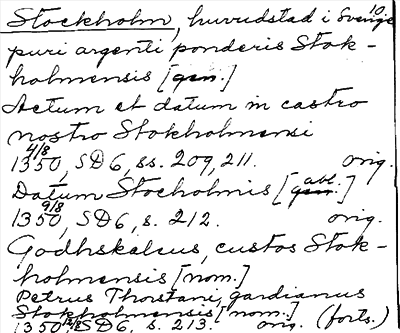 10.
Stockholm, huvudstad i Sverige
puri argenti ponderis Stok-
holmensis [gen.]
Actum et datum in castro
nostro Stokholmensi
4/8
1350, SD6, ss. 209, 211. orig.
Datum Stocholmis [abl.]
9/8
1350, SD6, s. 212. orig.
Godhskalcus, custos Stok-
holmensis [nom.]
Petrus Thorstani, gardianus
Stokholmensis [nom.]
1350 SD6, s. 213. orig. (forts.)